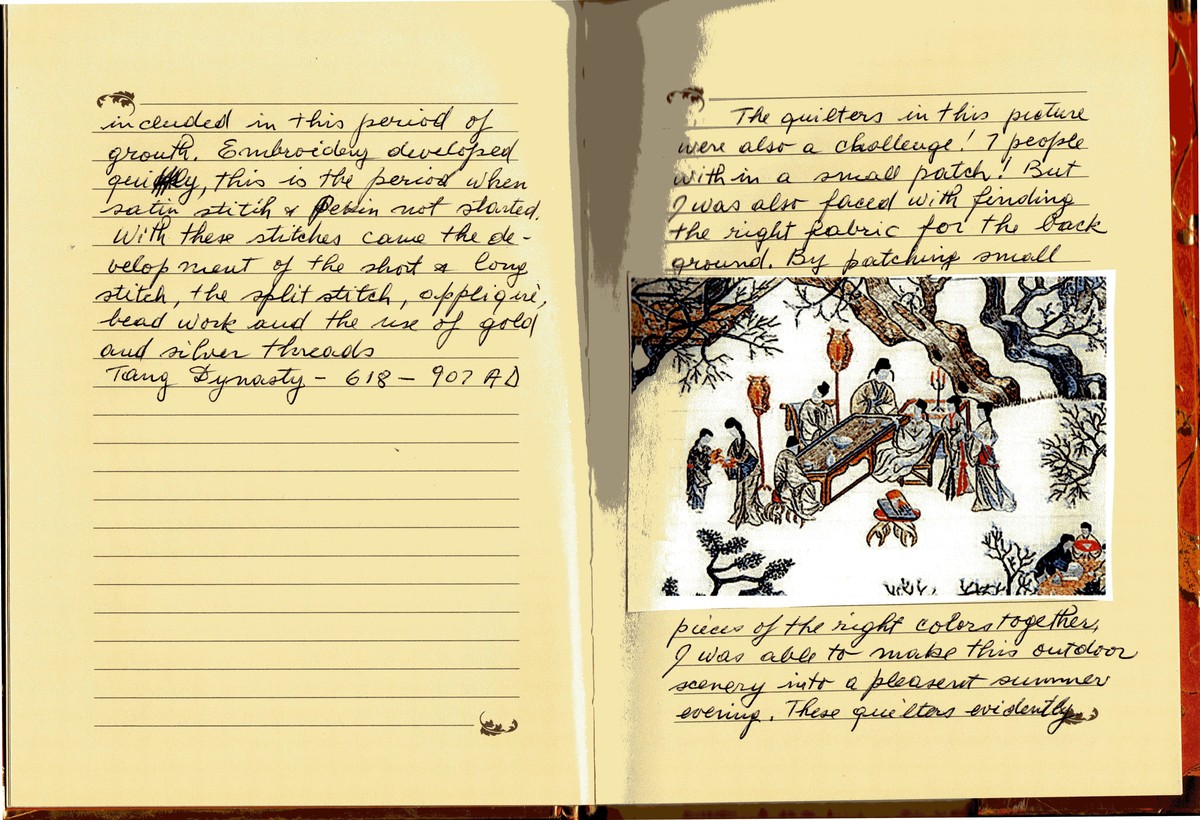 included in this period of
growth. Embroidery developed
quickly, this is the period when
satin stitch & Pekin not started.
With these stitches came the de-
velopment of the short & long
stitch, the split stitch, appliqué,
bead work and the use of gold
and silver threads
Tang Dynasty – 618 – 907 AD
The quilters in this picture
were also a challenge! 7 people
within a small patch! But
I was also faced with finding
the right fabric for the back
ground. By patching small
pieces of the right colors together,
I was able to make this outdoor
scenery into a pleasent summer
evening. These quilters evidently